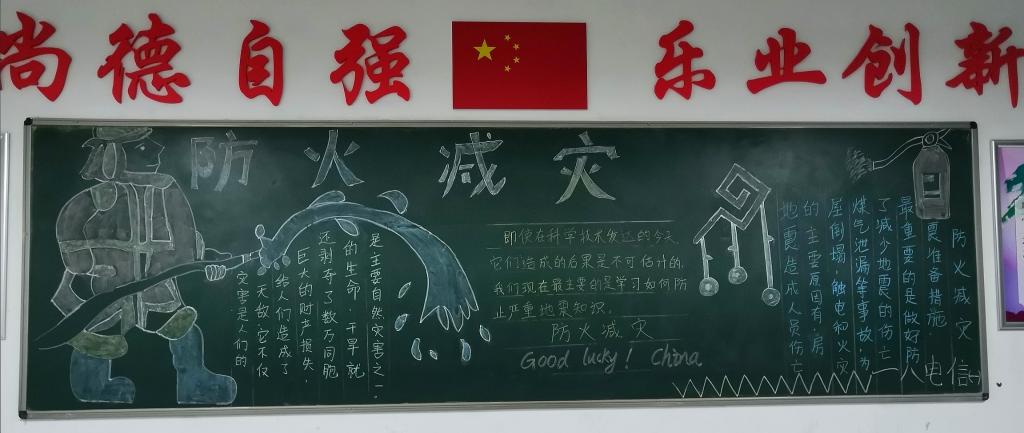 尚德自强 乐业创新
防火减灾
灾害是人们的
天敌,它不仅
给人们造成了
巨大的财产损失,
还剥夺了数万同胞
的生命,干旱就
是主要自然灾害之一.
即使在科学技术发达的今天,
它们造成的后果是不可估计的,
我们现在最主要的是学习如何防
止严重地震知识。
防火减灾
Good lucky! China
地震造成人员伤亡
的主要原因有,房
屋倒塌,触电和火灾
煤气池漏等事故,为
了减少地震的伤亡
最重要的是做好防
震准备措施
防火减灾
一八电信